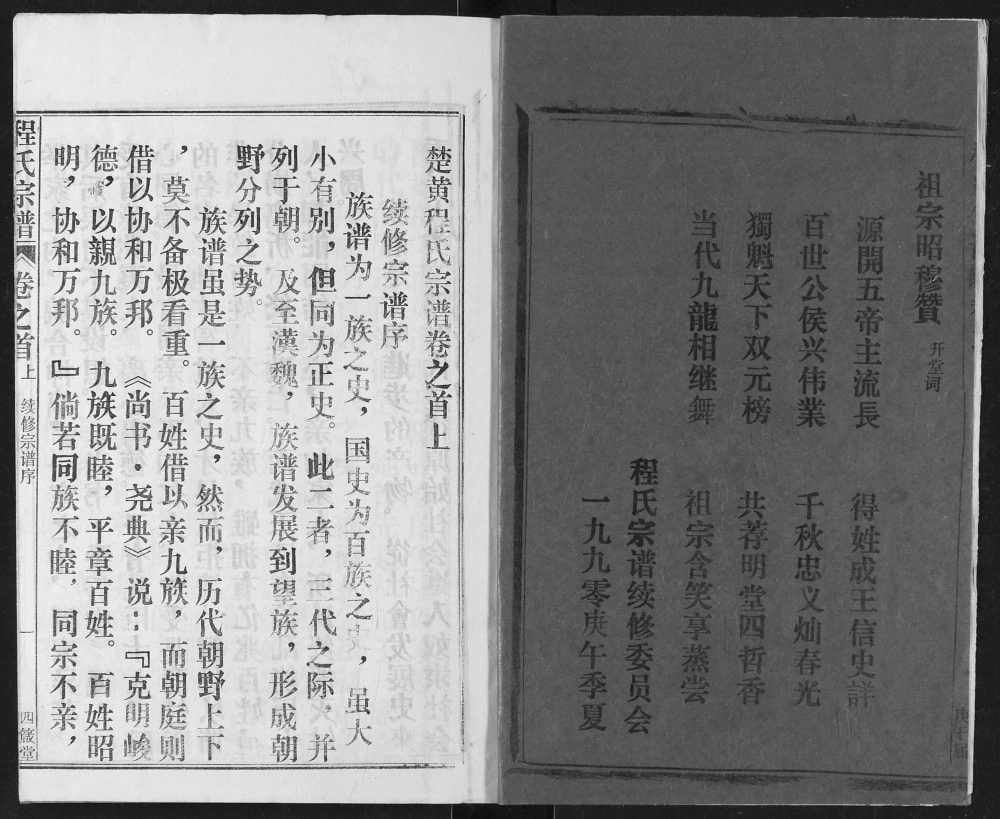 祖宗昭穆贊 开堂词
源開五帝主流長 得姓成王信史詳
百世公侯兴伟業 千秋忠义灿春光
獨魁天下双元榜 共荐明堂四哲香
当代九龍相继舞 祖宗含笑享蒸尝
程氏宗谱续修委员会
一九九零庚午季夏
庚午届
楚黄程氏宗谱卷之首上
续修宗谱序
族谱为一族之史，国史为百族之史，虽大
小有别，但同为正史。此二者，三代之际，并
列于朝。及至漢魏，族谱发展到望族，形成朝
野分列之势。
族谱虽是一族之史，然而，历代朝野上下
，莫不备极看重。百姓借以亲九族，而朝庭则
借以协和万邦。《尚书·尧典》说：『克明峻
德，以親九族。九族既睦，平章百姓。百姓昭
明，协和万邦。』倘若同族不睦，同宗不亲，
程氏宗谱 卷之首上 续修宗谱序 一 四箴堂